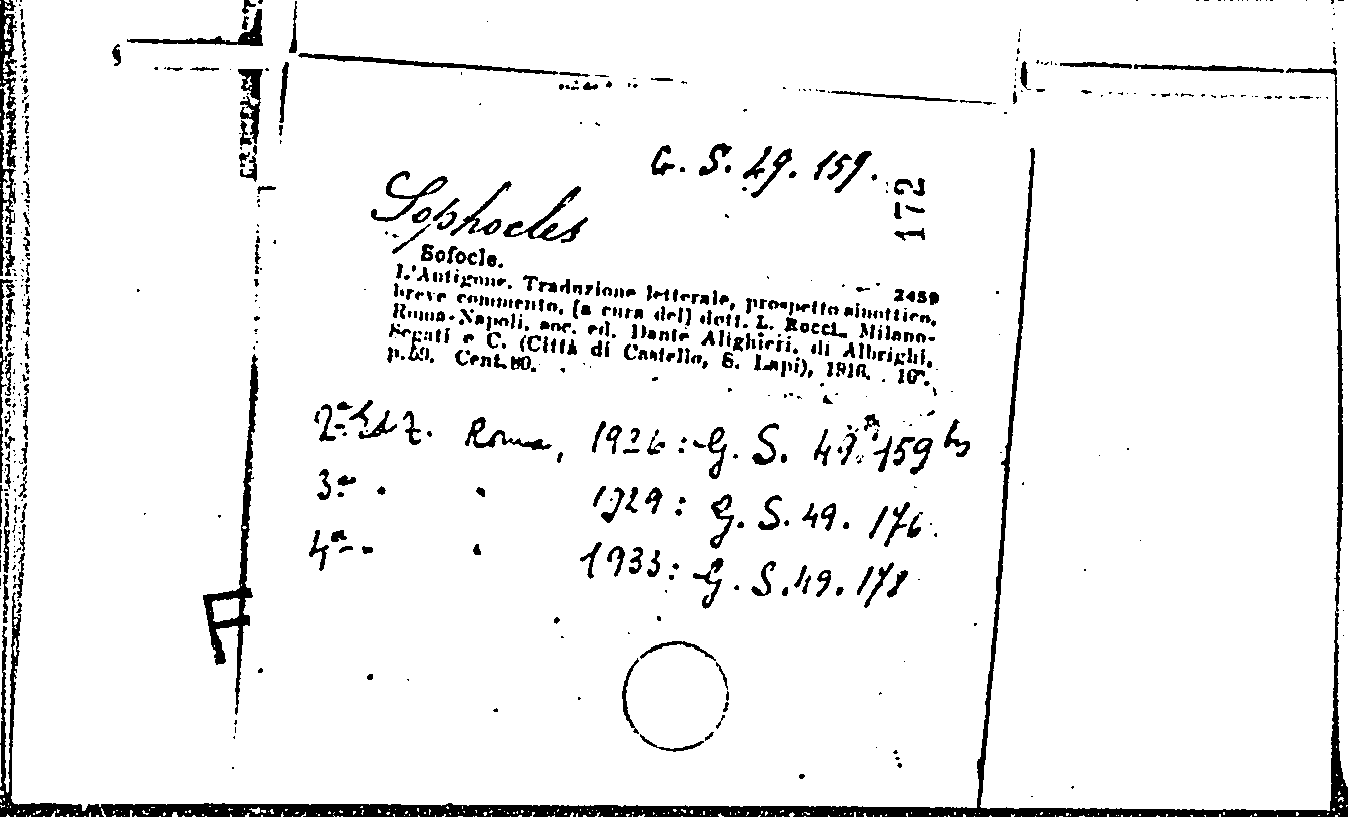 G. S. 49. 159.
172
Sophocles
Sofocle.
2459
L'Antigone. Traduzione letterale, prospetto sinottico,
breve commento, [a cura del] dott. L. Rocci. Milano-
Roma-Napoli, soc. ed. Dante Alighieri, di Albrighi,
Segati e C. (Città di Castello, S. Lapi), 1916. 16°.
p. 59. Cent. 80.
2ª Ed. Roma, 1926: G. S. 49. 159 bis
3ª " " 1929: G. S. 49. 176.
4ª " " 1933: G. S. 49. 178
F